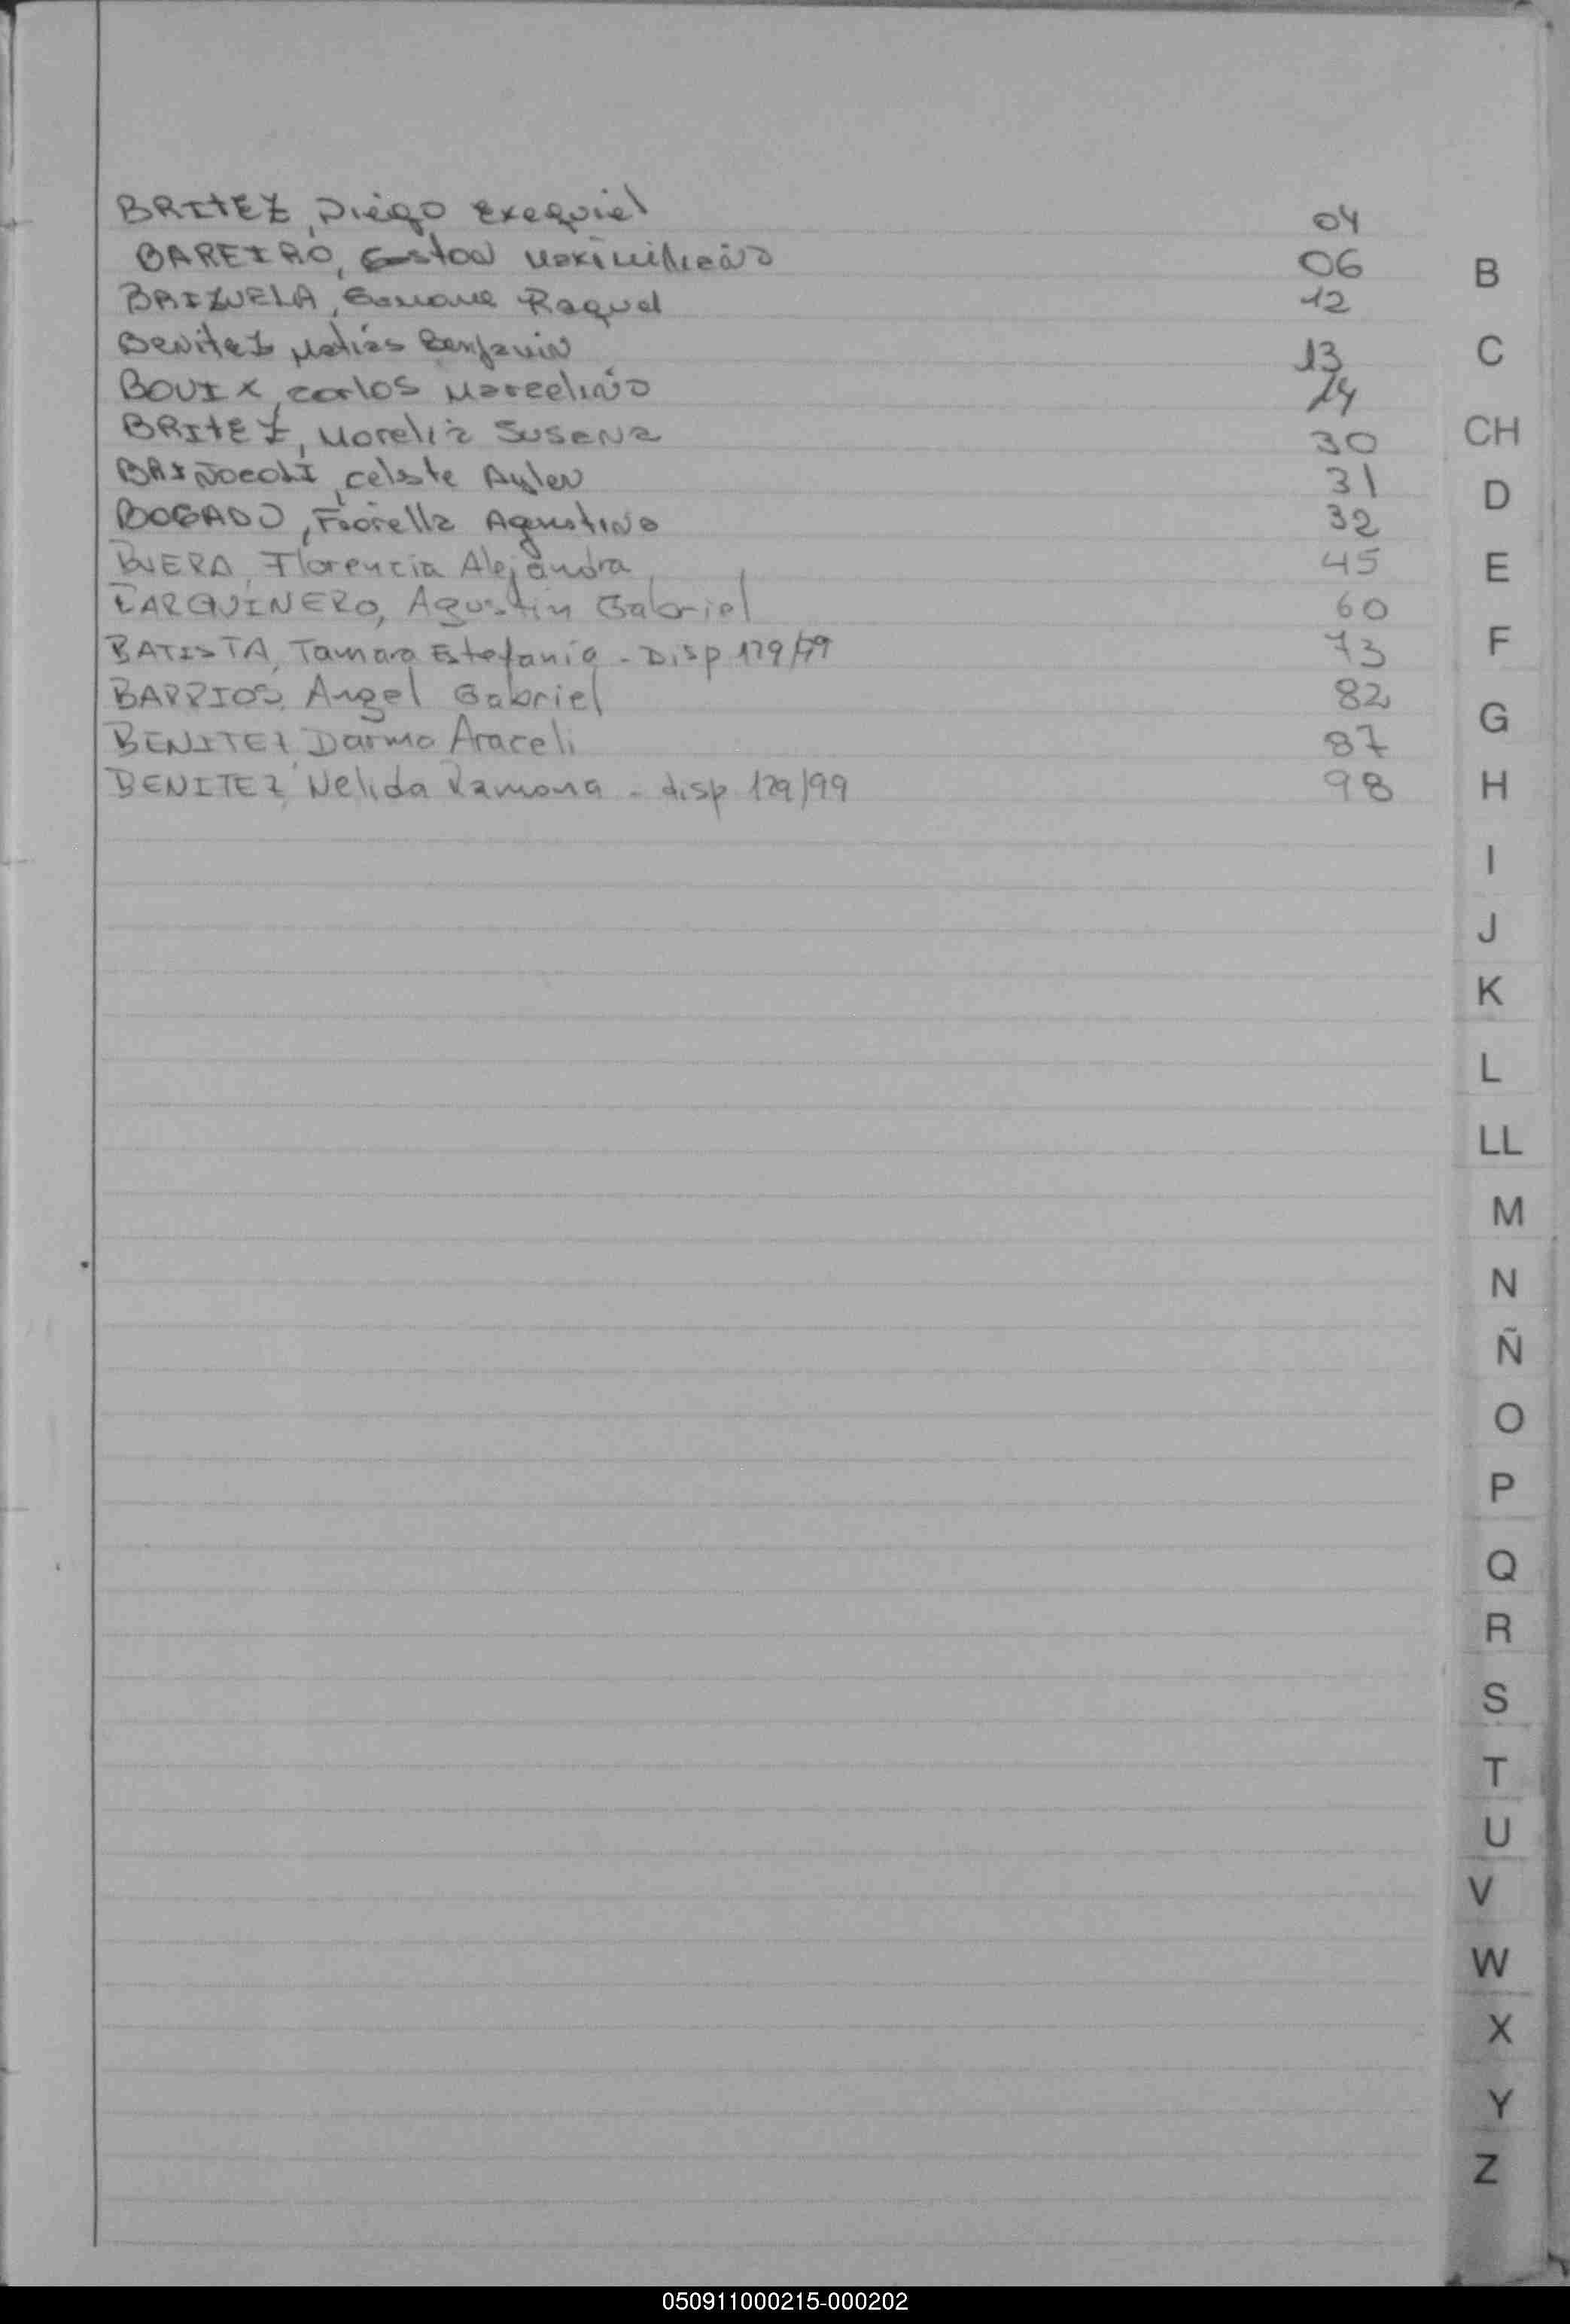 BRITEZ, Diego Exequiel 04
BAREIRO, Gaston Maximiliano 06
BRIZUELA, Raquel 12
Benitez Matias Benjamin 13
BOUIX, Carlos Marcelino 14
BRITEZ, Morelia Susana 30
Celeste Aylen 31
BOGADO, Fiorella Agustina 32
Florencia Alejandra 45
BARQUINERO, Agustin Gabriel 60
BATISTA, Tamara Estefania - Disp 179/99 73
BARRIOS, Angel Gabriel 82
BENITEZ, Darma Araceli 87
BENITEZ, Nelida Ramona - disp 179/99 98
B
C
CH
D
E
F
G
H
I
J
K
L
LL
M
N
Ñ
O
P
Q
R
S
T
U
V
W
X
Y
Z
050911000215-000202